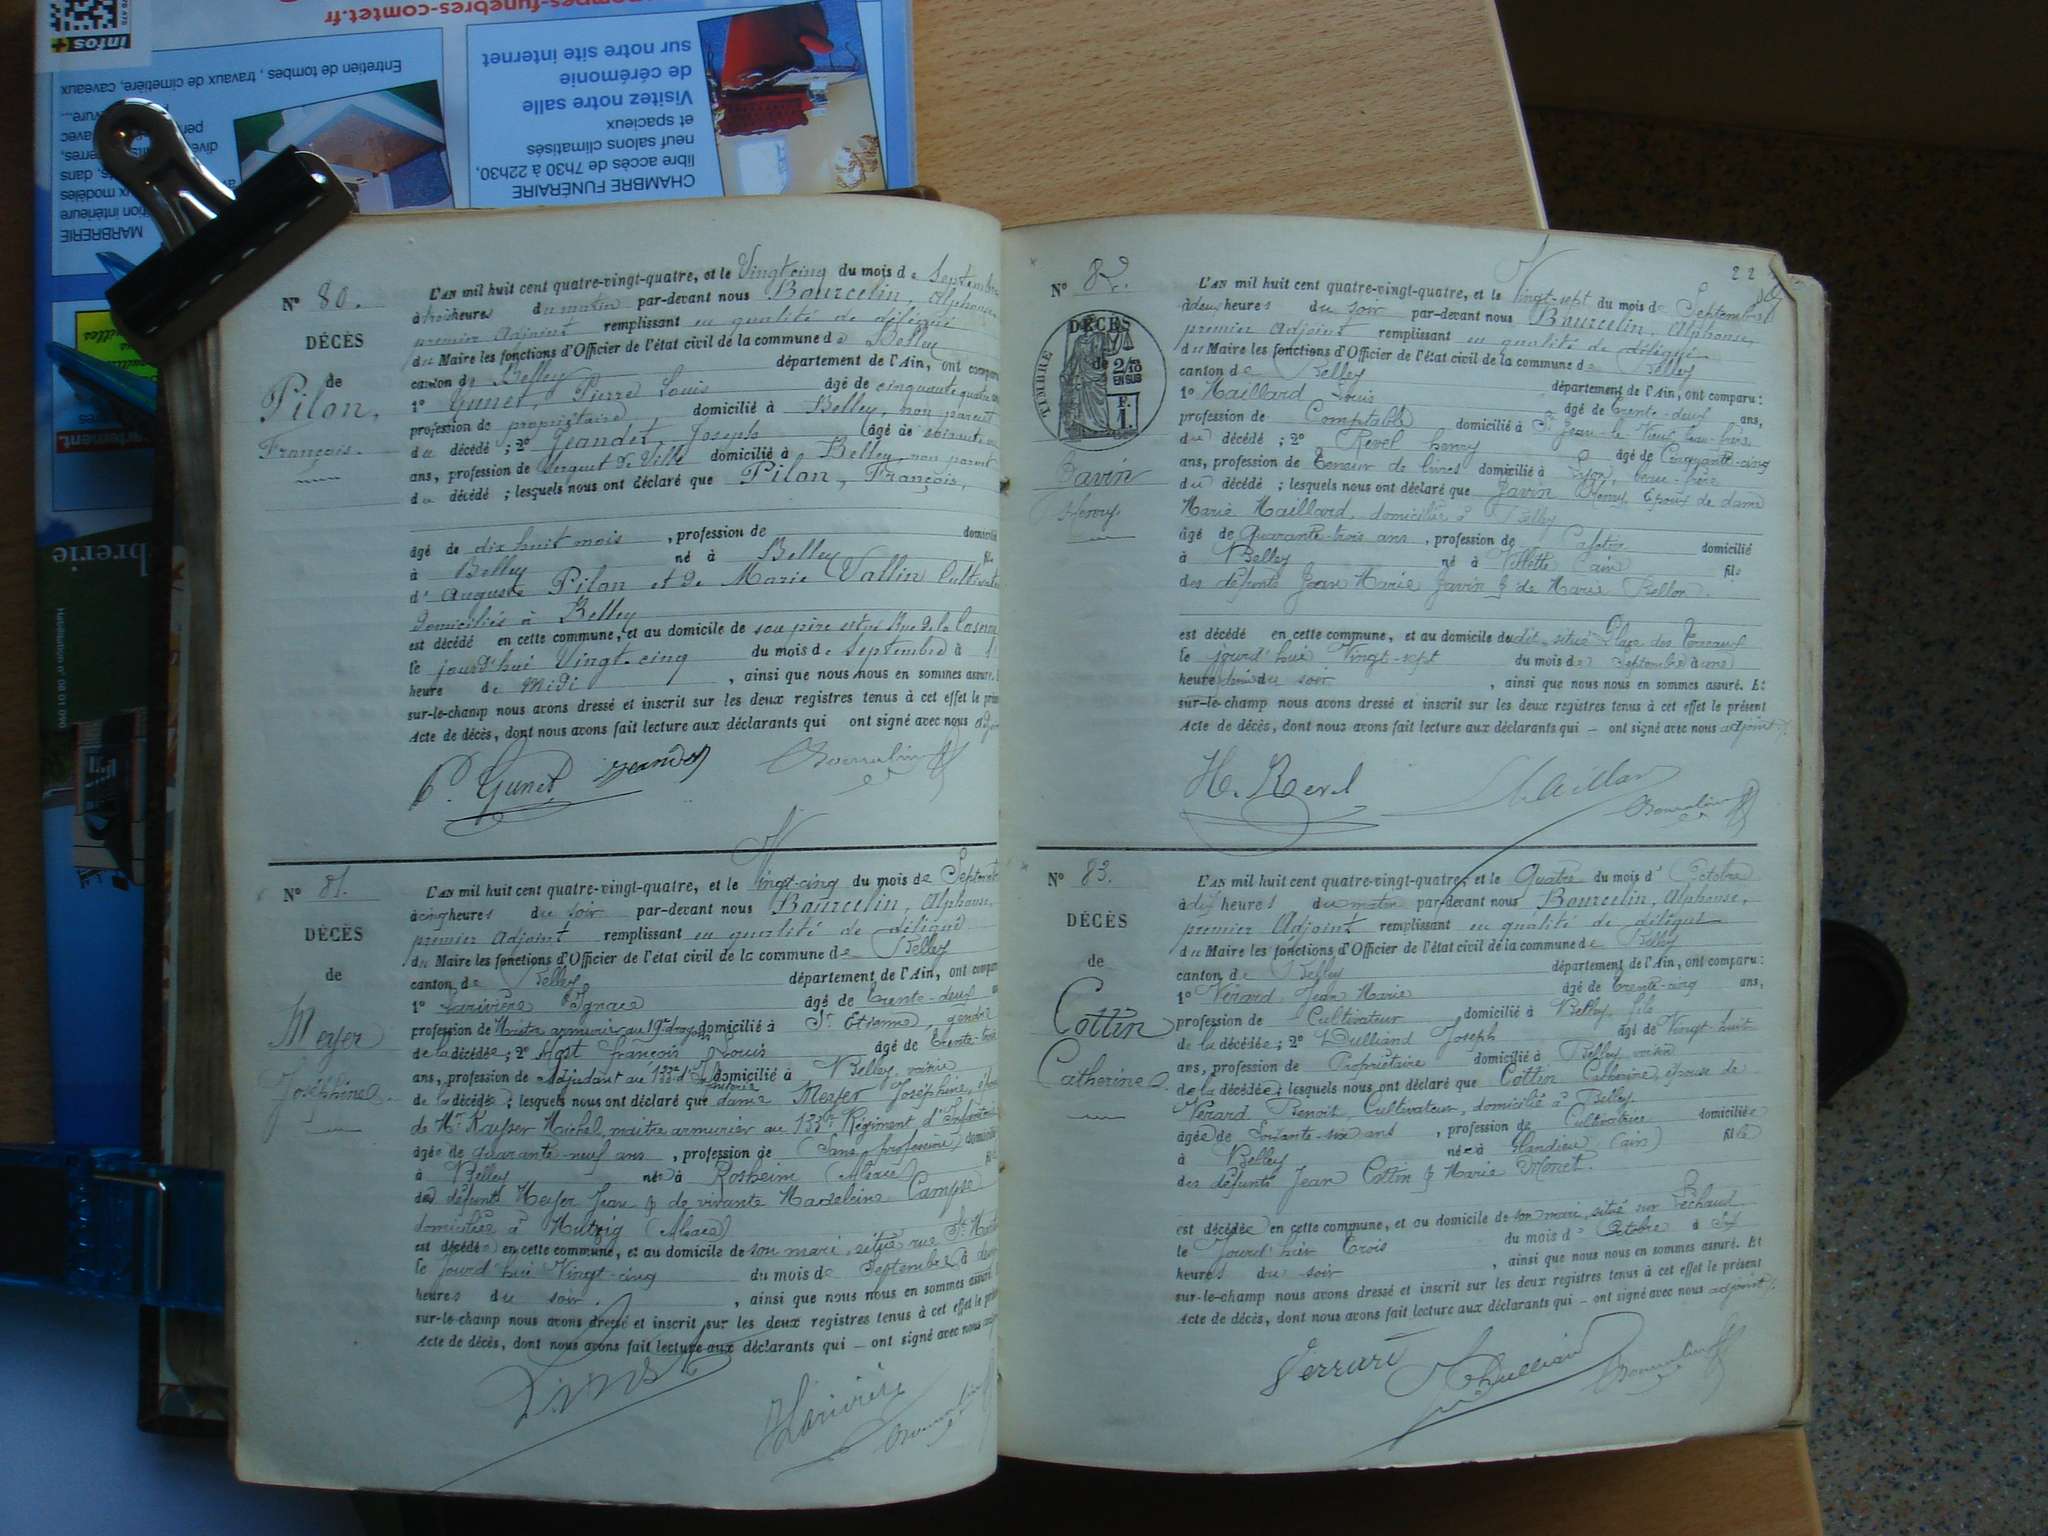 infos+
mpes-funebres-comtet.fr
Entretien de tombes, travaux de cimetière, caveaux
MARBRERIE
Visitez notre salle
de cérémonie
sur notre site internet
CHAMBRE FUNÉRAIRE
libre accès de 7h30 à 22h30,
neuf salons climatisés
et spacieux
N° 80.
DÉCÈS
de
Pilon,
François.
L'AN mil huit cent quatre-vingt-quatre, et le Vingt cinq du mois de Septembre
à trois heures du matin par-devant nous Bourcelin, Alphonse,
premier Adjoint remplissant en qualité de délégué
du Maire les fonctions d'Officier de l'état civil de la commune de Belley
canton de Belley département de l'Ain, ont comparu
1° Gunet, Pierre Louis âgé de cinquante quatre
profession de propriétaire, domicilié à Belley, non parent
du décédé ; 2° Jeandet, Joseph âgé de soixante
ans, profession de Sergent de Ville domicilié à Belley, non parent
du décédé ; lesquels nous ont déclaré que Pilon, François,
âgé de dix huit mois , profession de domicilié
à Belley né à Belley fils
d'Auguste Pilon et de Marie Vallin Cultivate
domiciliés à Belley
est décédé en cette commune, et au domicile de son père situé Rue de la Caserne
le jourd'hui Vingt-cinq du mois de Septembre à
heure de midi , ainsi que nous nous en sommes assuré.
sur-le-champ nous avons dressé et inscrit sur les deux registres tenus à cet effet le prés
Acte de décès, dont nous avons fait lecture aux déclarants qui ont signé avec nous adj
P. Gunet Jeandet Bourcelin
N° 81.
DÉCÈS
de
Meyer
Joséphine.
L'AN mil huit cent quatre-vingt-quatre, et le Vingt-cinq du mois de Septemb
à cinq heures du soir par-devant nous Bourcelin, Alphonse,
premier Adjoint remplissant en qualité de délégué
du Maire les fonctions d'Officier de l'état civil de la commune de Belley
canton de Belley département de l'Ain, ont compar
1° Larivière Ignace âgé de trente-deux
profession de Maître armurier au 19e drag. domicilié à St Etienne, gendre
de la décédée ; 2° François Louis âgé de trente-trois
ans, profession de Adjudant au 133e d'Infanterie domicilié à Belley, voisin
de la décédée ; lesquels nous ont déclaré que dame Meyer Joséphine, épouse
de Mr Kayser Michel, maître armurier au 133e Régiment d'Infanterie
âgée de quarante-neuf ans , profession de (Sans profession) domicilié
à Belley née à Rosheim (Alsace)
des défunts Meyer Jean & de vivante Madeleine Campse
domiciliée à Mutzig (Alsace)
est décédée en cette commune, et au domicile de son mari, situé rue St
le jourd'hui Vingt-cinq du mois de Septembre à
heures du soir. , ainsi que nous nous en sommes assuré.
sur-le-champ nous avons dressé et inscrit sur les deux registres tenus à cet effet le prés
Acte de décès, dont nous avons fait lecture aux déclarants qui — ont signé avec nous adj
Larivière Bourcelin
22
N° 82.
DÉCÈS
de
TIMBRE
2/10
EN SUS
F.
1.
Javin
Henry
L'AN mil huit cent quatre-vingt-quatre, et le Vingt-sept du mois de Septembre
à deux heures du soir par-devant nous Bourcelin, Alphonse,
premier Adjoint remplissant en qualité de délégué
du Maire les fonctions d'Officier de l'état civil de la commune de Belley
canton de Belley département de l'Ain, ont comparu :
1° Maillard Louis âgé de trente-deux ans,
profession de Comptable domicilié à St Jean-le-Vieux beau-frère
du décédé ; 2° Revel henry âgé de Cinquante-cinq
ans, profession de Teneur de livres domicilié à Lyon, beau-frère
du décédé ; lesquels nous ont déclaré que Javin Henry, Epoux de dame
Marie Maillard, domiciliée à Belley
âgé de Quarante-trois ans , profession de Cafetier domicilié
à Belley né à Villette (ain) fils
des défunts Jean Marie Javin & de Marie Rellon.
est décédé en cette commune, et au domicile dudit, situé Place des Terreaux
le jourd'hui Vingt-sept du mois de Septembre à une
heure demie du soir , ainsi que nous nous en sommes assuré. Et
sur-le-champ nous avons dressé et inscrit sur les deux registres tenus à cet effet le présent
Acte de décès, dont nous avons fait lecture aux déclarants qui — ont signé avec nous adjoint
H. Revel Maillard
Bourcelin
N° 83.
DÉCÈS
de
Cottin
Catherine
L'AN mil huit cent quatre-vingt-quatre, et le Quatre du mois d'Octobre
à dix heures du matin par-devant nous Bourcelin, Alphonse,
premier Adjoint remplissant en qualité de délégué
du Maire les fonctions d'Officier de l'état civil de la commune de Belley
canton de Belley département de l'Ain, ont comparu :
1° Verard Jean Marie âgé de trente-cinq ans,
profession de Cultivateur domicilié à Belley, fils
de la décédée ; 2° Dulliand Joseph âgé de Vingt-huit
ans, profession de Propriétaire domicilié à Belley, voisin
de la décédée ; lesquels nous ont déclaré que Cottin Catherine, épouse de
Verard Benoit, Cultivateur, domicilié à Belley
âgée de Soixante-six ans , profession de Cultivatrice domiciliée
à Belley née à Glandieu (ain) fille
des défunts Jean Cottin & Marie Monet.
est décédée en cette commune, et au domicile de son mari, situé sur
le Jourd'hui Trois du mois d'Octobre à Six
heures du soir , ainsi que nous nous en sommes assuré. Et
sur-le-champ nous avons dressé et inscrit sur les deux registres tenus à cet effet le présent
Acte de décès, dont nous avons fait lecture aux déclarants qui — ont signé avec nous adjoint
JDulliand Bourcelin